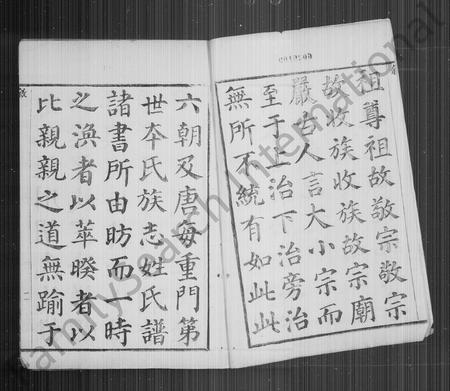 祖尊祖故敬宗敬宗
故收族收族故宗廟
嚴古人言大小宗而
至于上治下治旁治
無所不統有如此此
六朝及唐每重門第
世夲氏族志姓氏譜
諸書所由昉而一時
之渙者以萃暌者以
比親親之道無踰于
FamilySearch International